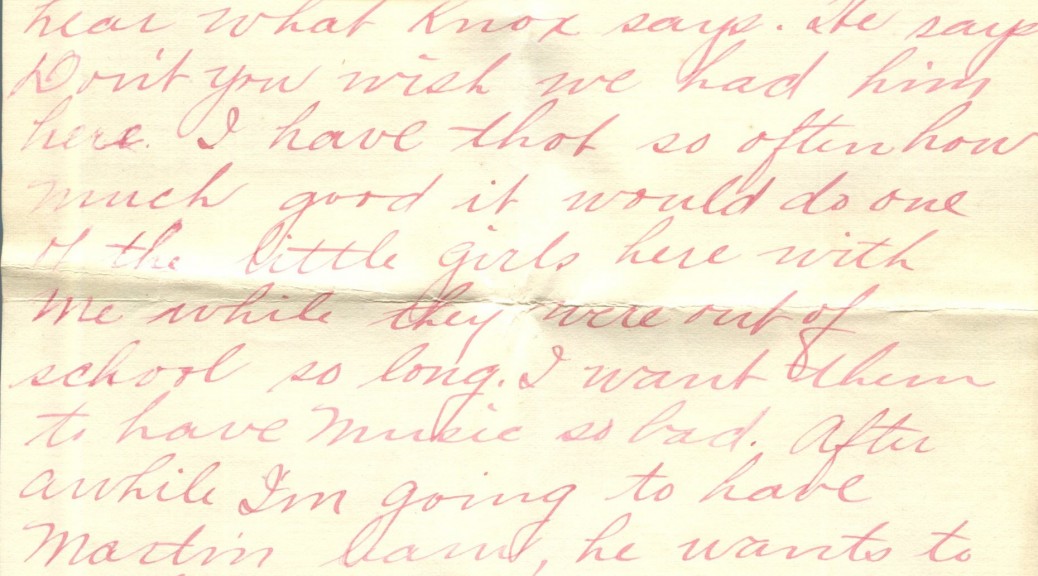 hear what Knox says. He says
Don't you wish we had him
here. I have thot so often how
much good it would do one
of the little girls here with
me while they were out of
school so long. I want them
to have Music so bad. After
awhile I'm going to have
Martin learn, he wants to